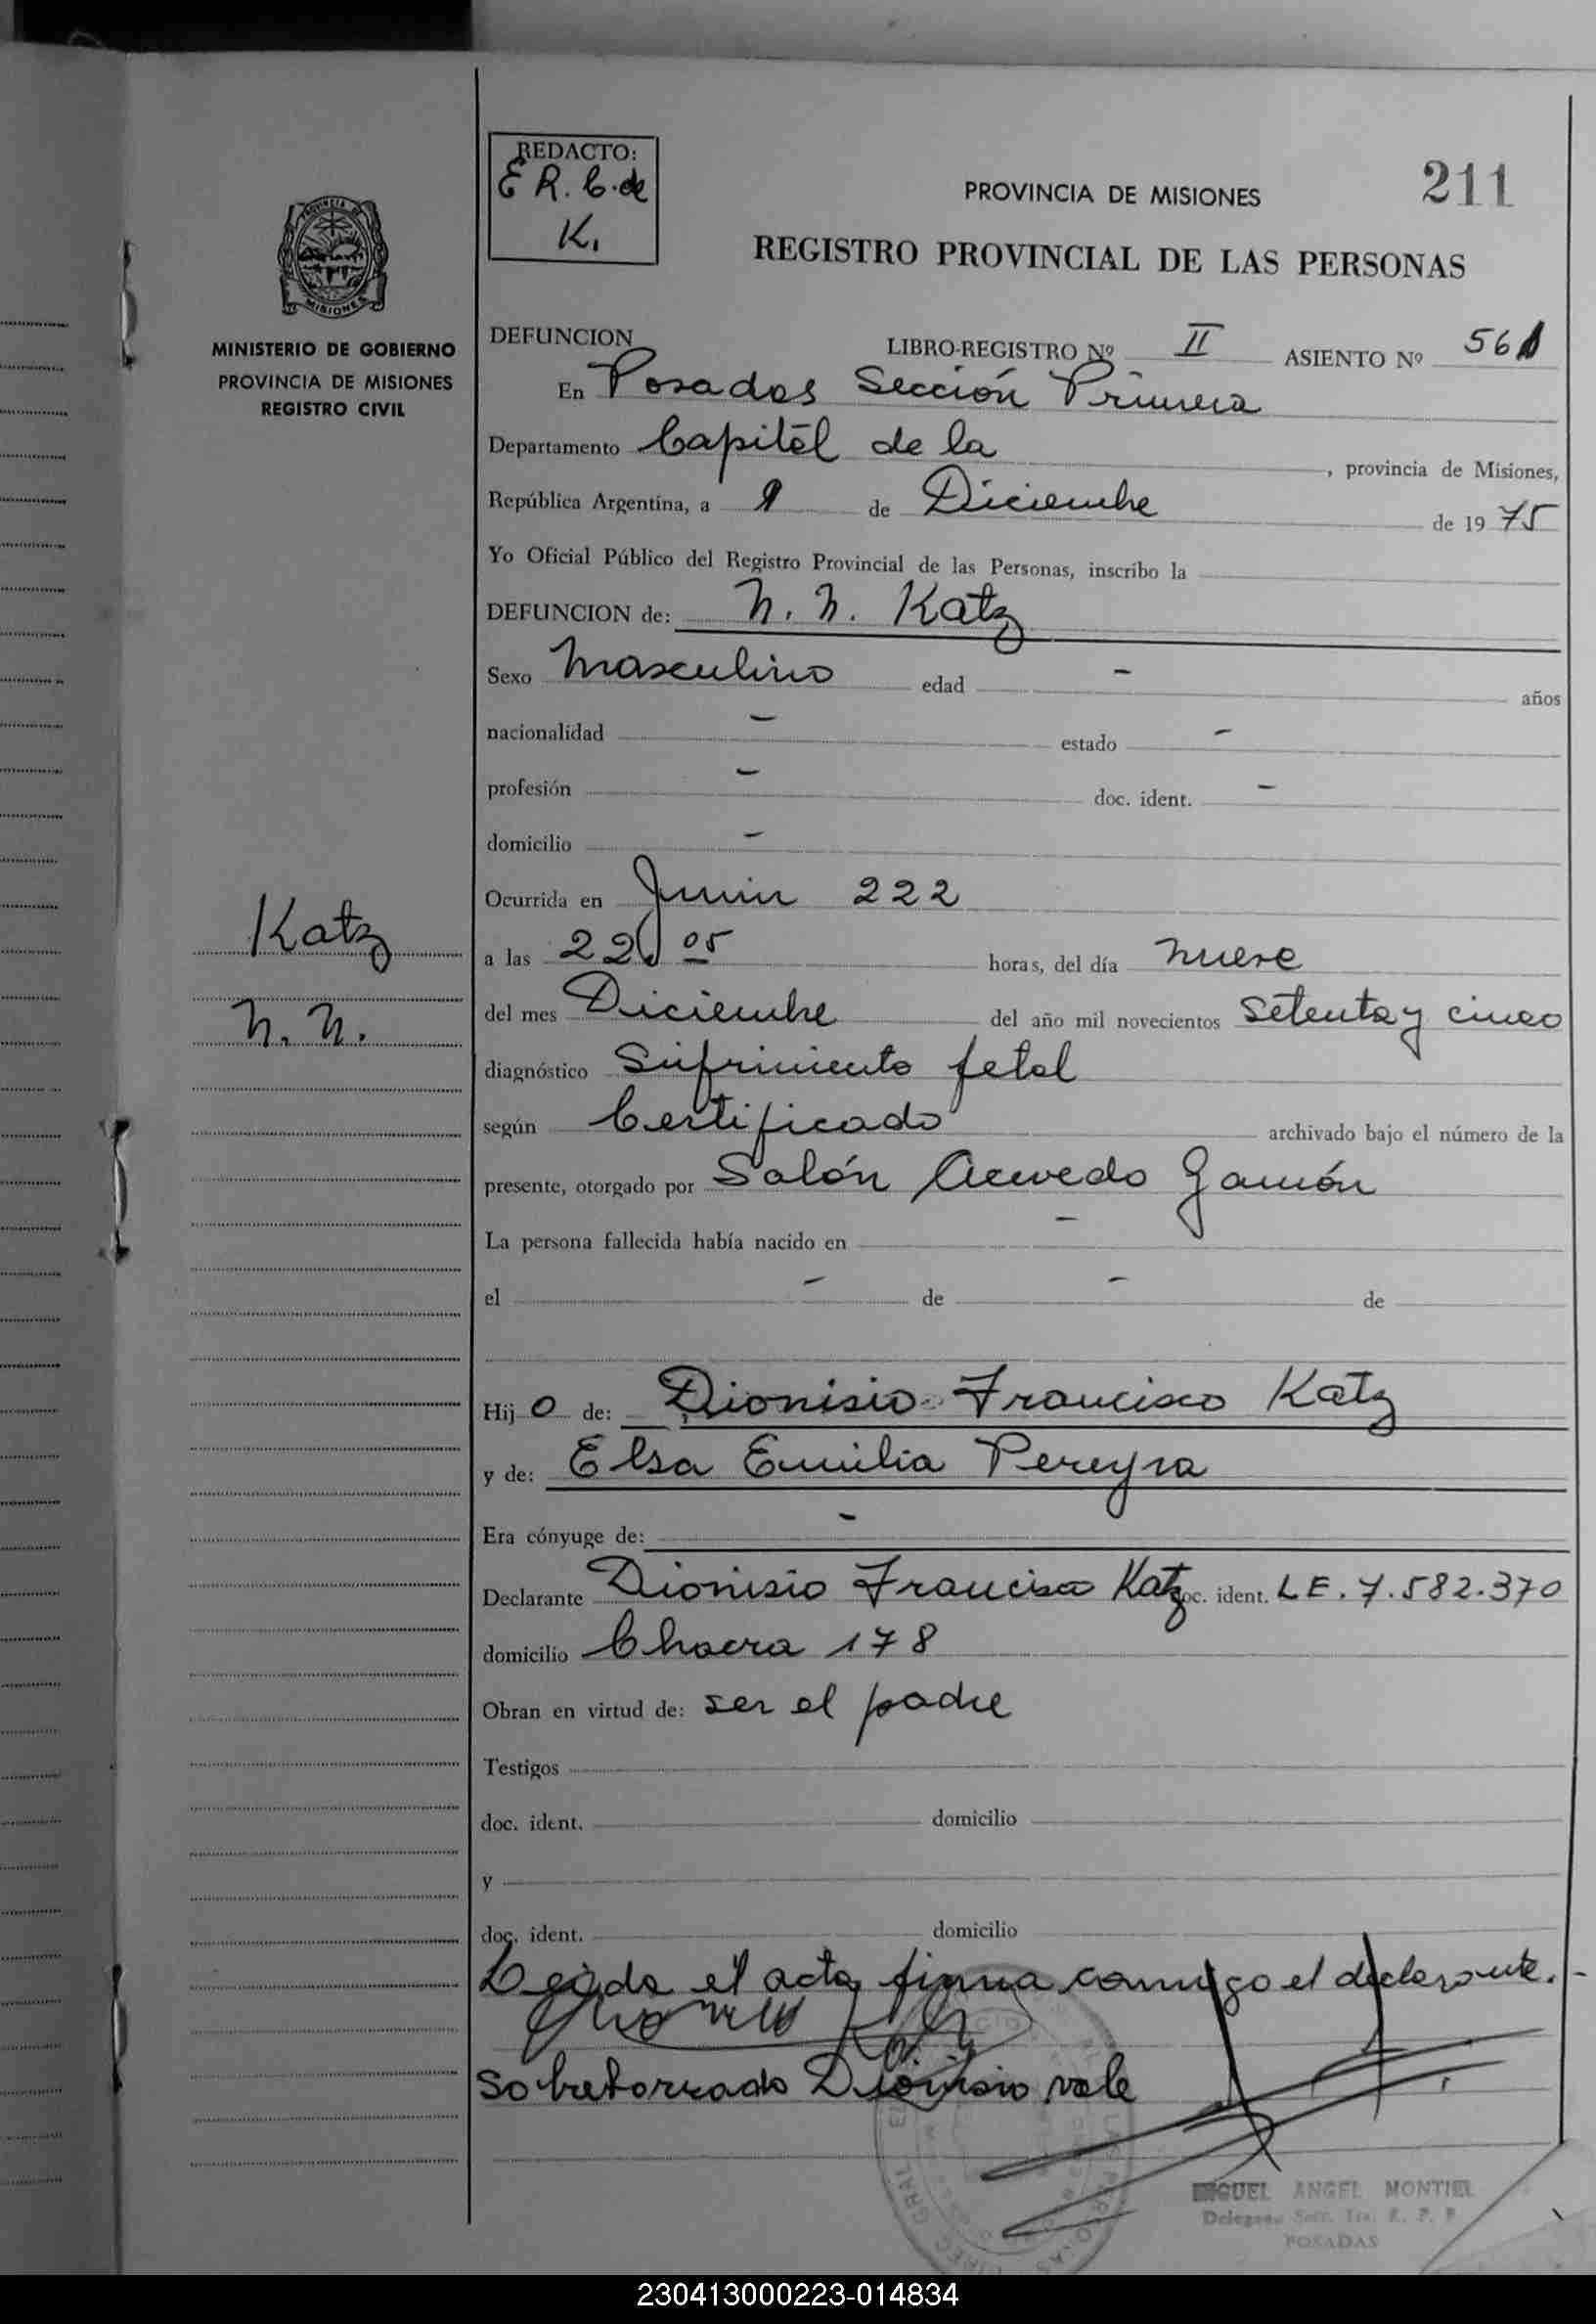 REDACTO:
E R. C. de
K.
PROVINCIA DE MISIONES
211
REGISTRO PROVINCIAL DE LAS PERSONAS
PROVINCIA DE
MISIONES
MINISTERIO DE GOBIERNO
PROVINCIA DE MISIONES
REGISTRO CIVIL
DEFUNCION
LIBRO-REGISTRO Nº II ASIENTO Nº 561
En Posadas Sección Primera
Departamento Capital de la , provincia de Misiones,
República Argentina, a de Diciembre de 19 75
Yo Oficial Público del Registro Provincial de las Personas, inscribo la
DEFUNCION de: N. N. Katz
Sexo Masculino edad - años
nacionalidad - estado -
profesión - doc. ident. -
domicilio -
Ocurrida en Junin 222
Katz
a las 22 05 horas, del día nueve
N. N.
del mes Diciembre del año mil novecientos Setenta y cinco
diagnóstico Sufrimiento fetal
según Certificado archivado bajo el número de la
presente, otorgado por Salón Acevedo Gamón
La persona fallecida había nacido en -
el - de - de
Hij o de: Dionisio Francisco Katz
y de: Elsa Emilia Pereyra
Era cónyuge de: -
Declarante Dionisio Francisco Katz doc. ident. LE. 7.582.370
domicilio Chacra 178
Obran en virtud de: ser el padre
Testigos
doc. ident. domicilio
y
doc. ident. domicilio
Leida el acta, firma conmigo el declarante. -
Sobreborrado Dionisio vale
MIGUEL ANGEL MONTIEL
POSADAS
230413000223-014834